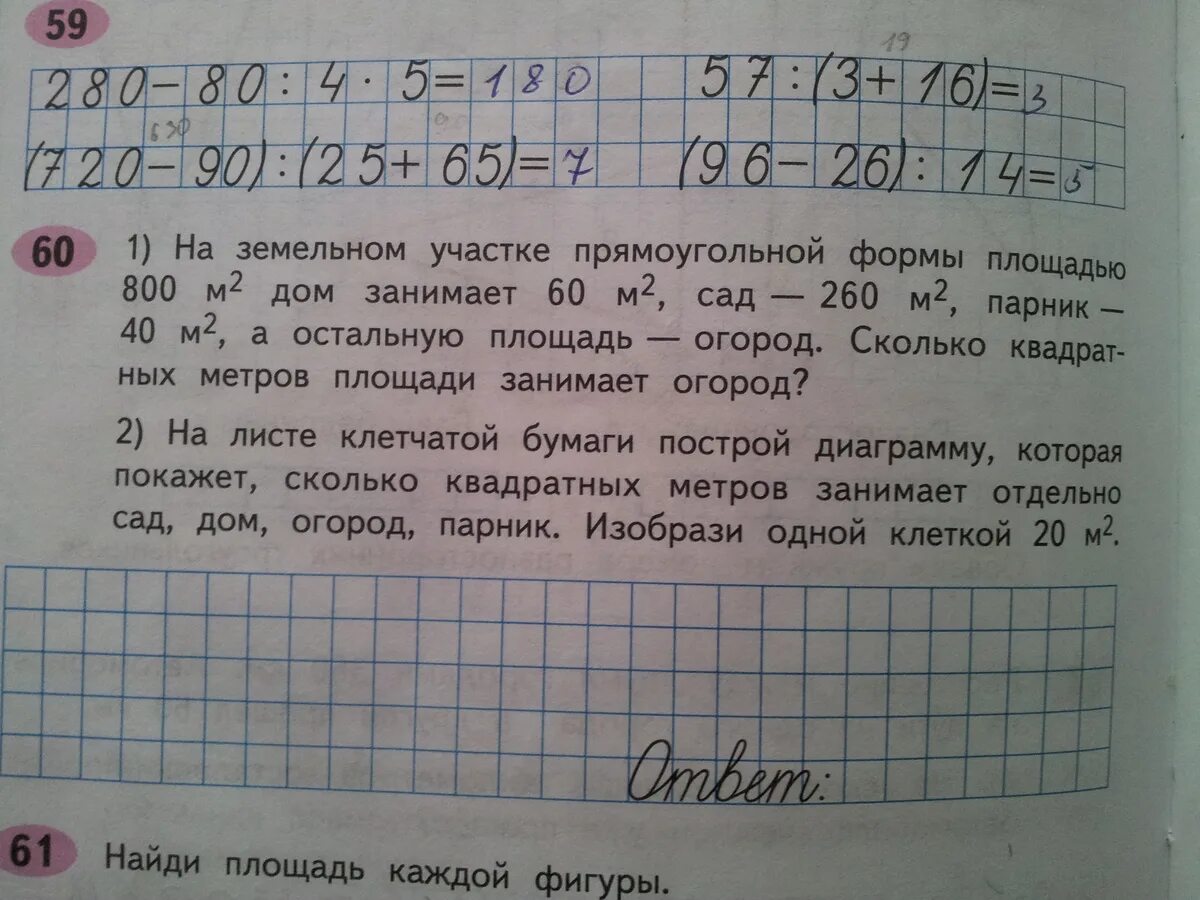 59
19
280-80:4·5=180 57:(3+16)=3
630 90
(720-90):(25+65)=7 (96-26):14=5
60 1) На земельном участке прямоугольной формы площадью
800 м² дом занимает 60 м², сад — 260 м², парник —
40 м², а остальную площадь — огород. Сколько квадрат-
ных метров площади занимает огород?
2) На листе клетчатой бумаги построй диаграмму, которая
покажет, сколько квадратных метров занимает отдельно
сад, дом, огород, парник. Изобрази одной клеткой 20 м².
Ответ:
61 Найди площадь каждой фигуры.